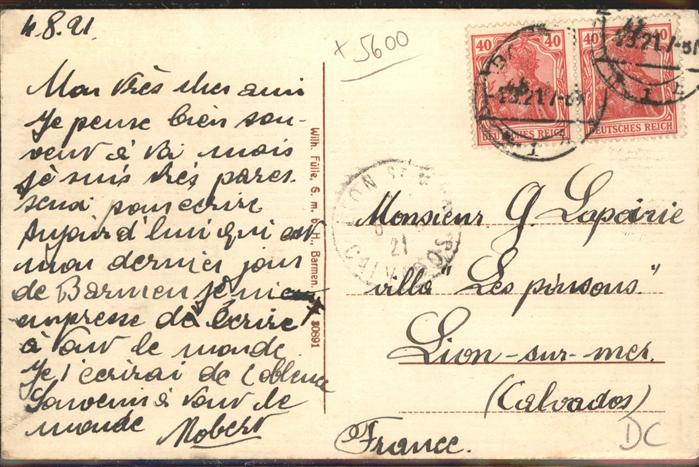 4.8.21.
x 5600
40 40
DEUTSCHES REICH
40
DEUTSCHES REICH
Mon très cher ami
Je pense bien sou-
vent à toi mais
je suis très pares-
seux pour écrire
Aujourd'hui qui est
mon dernier jour
de Barmen je m'em
empresse de t'écrire
à tout le monde
Je t'écrirai de Coblence
Souvenir à tout le
monde Robert
Wilh. Fülle, G. m. b. H., Barmen. 30891
LION S
21
CALVADOS
Monsieur G. Lapairie
villa "Les pinsons."
Lion-sur-mer.
(Calvados)
France.
DC